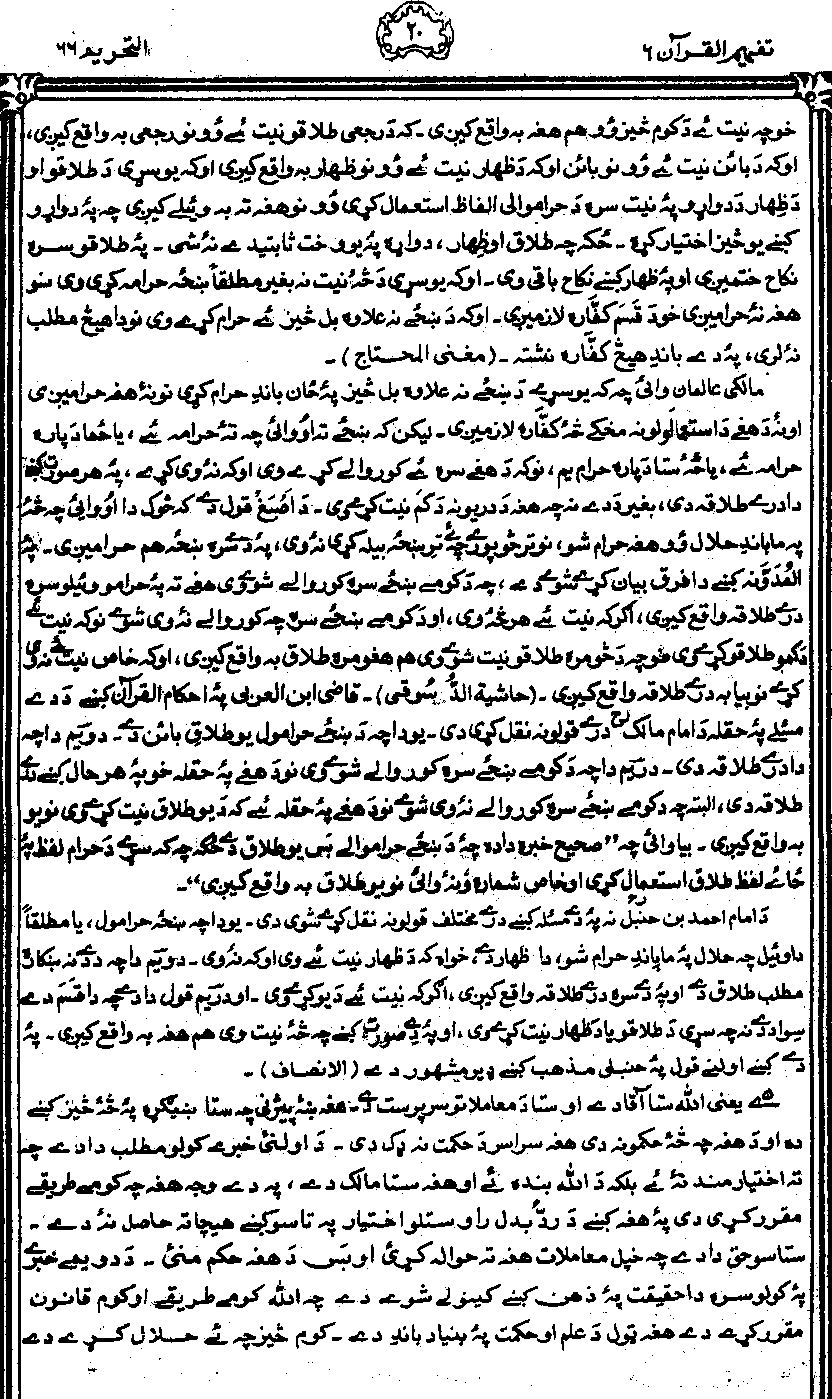 تفهیم القرآن ۶
۲۰
التحریم ۶۶
خو چه نیت ئے دَ کوم څیز وُو هم هغه به واقع کیږی ـ که دَ رجعی طلاقو نیت ئے وُو نو رجعی به واقع کیږی،
اوکه دَ بائن نیت ئے وُو نو بائن اوکه دَ ظهار نیت ئے وُو نو ظهار به واقع کیږی اوکه یو سړی دَ طلاقو او
دَ ظهار دَ دواړو په نیت سره دَ حرامو الی الفاظ استعمال کړی وُو نو هغه ته به وئیلے کیږی چه په دواړو
کښے یو څیز اختیار کړه ـ ځکه چه طلاق او ظهار، دواړه په یو وخت ثابتیدے نۀ شی ـ په طلاقو سره
نکاح ختمیږی او په ظهار کښے نکاح باقی وی ـ اوکه یو سړی دَ څۀ نیت نه بغیر مطلقاً ښځه حرامه کړی وی نو
هغه نۀ حرامیږی خو دَ قسم کفّاره لازمیږی ـ اوکه دَ ښځے نه علاوه بل څیز ئے حرام کړے وی نو دا هیڅ مطلب
نۀ لری، په دے باندِ هیڅ کفّاره نشته ـ (مغنی المحتاج) ـ
مالکی عالمان وائی چه که یو سړے دَ ښځے نه علاوه بل څیز په ځان باندِ حرام کړی نو نۀ هغه حرامیږی
او نۀ دَ هغے دَ استعمالولو نه مخکے څۀ کفّاره لازمیږی ـ لیکن که ښځے ته اووائی چه تۀ حرامه ئے، یا ځما دَپاره
حرامه ئے، یا زۀ ستا دَپاره حرام یم، نو که دَ هغے سره ئے کوروالے کړے وی اوکه نۀ وی کړے، په هر صورت کښے
دا درے طلاقه دی، بغیر دَ دے نه چه هغه دَ دریو نه دَ کم نیت کړے وی ـ دَ اَصْبَغْ قول دے که څوک دا اووائی چه څۀ
په ما باندِ حلال وُو هغه حرام شو، نو تر څو پورے چه ئے ښځه بیله کړی نۀ وی، په دے سره ښځه هم حرامیږی ـ په
المُدَوَّنه کښے دا فرق بیان کړے شوے دے، چه دَ کومے ښځے سره کوروالے شوے وی هغے ته په حرامو وئیلو سره
درے طلاقه واقع کیږی، اگرکه نیت ئے هر څۀ وی، او دَ کومے ښځے سره چه کوروالے نۀ وی شوے نو که نیت ئے
دَ کمو طلاقو کړے وی نو چه دَ څومره طلاقو نیت شوے وی هم هغومره طلاق به واقع کیږی، اوکه خاص نیت ئے نۀ وی
کړے نو بیا به درے طلاقه واقع کیږی ـ (حاشیة الدُّسوقی) ـ قاضی ابن العربی په احکام القرآن کښے دَ دے
مسئلے په حقله دَ امام مالکؒ درے قولونه نقل کړی دی ـ یو دا چه دَ ښځے حرامول یو طلاق بائن دے ـ دوئم دا چه
دا درے طلاقه دی ـ دریم دا چه دَ کومے ښځے سره کوروالے شوے وی نو دَ هغے په حقله خو په هر حال کښے درے
طلاقه دی، البته چه دَ کومے ښځے سره کوروالے نۀ وی شوے نو دَ هغے په حقله ئے که دَ یو طلاق نیت کړے وی نو یو
به واقع کیږی ـ بیا وائی چه "صحیح خبره داده چه دَ ښځے حراموالے بس یو طلاق دے ځکه چه که سړے دَ حرام لفظ په
ځائے لفظ طلاق استعمال کړی او خاص شماره ونۀ وائی نو یو طلاق به واقع کیږی" ـ
دَ امام احمد بن حنبلؒ نه په دے مسئله کښے درے مختلف قولونه نقل کړے شوی دی ـ یو دا چه ښځه حرامول، یا مطلقاً
دا وئیل چه حلال په ما باندِ حرام شو، دا ظهار دے، خواه که دَ ظهار نیت ئے وی اوکه نۀ وی ـ دوئم دا چه دَ دے نه ښکاره
مطلب طلاق دے او په دے سره درے طلاقه واقع کیږی، اگرکه نیت ئے دَ یو کړے وی ـ او دریم قول دا دے چه دا قسم دے
سوا دَ دے نه چه سړی دَ طلاقو یا دَ ظهار نیت کړے وی، او په دِے صورت کښے چه څۀ نیت وی هم هغه به واقع کیږی ـ په
دے کښے اولنے قول په حنبلی مذهب کښے ډیر مشهور دے (الانصاف) ـ
یعنی الله ستا آقا دے او ستا دَ معاملاتو سرپرست دے ـ هغه ښۀ پیژنی چه ستا ښیګړه په څۀ څیز کښے
ده او دَ هغه چه څۀ حکمونه دی هغه سراسر دَ حکمت نه ډک دی ـ دَ اولنئ خبرے کولو مطلب دا دے چه
ته اختیارمند نۀ ئے بلکه دَ الله بنده ئے او هغه ستا مالک دے، په دے وجه هغه چه کومے طریقے
مقرر کړی دی په هغه کښے دَ ردّ و بدل راوستلو اختیار په تاسو کښے هیچا ته حاصل نۀ دے ـ
ستاسو حق دا دے چه خپل معاملات هغه ته حواله کړئ او بس دَ هغه حکم منئ ـ دَ دویمے خبرے
په کولو سره دا حقیقت په ذهن کښے کینولے شوے دے چه الله کومے طریقے او کوم قانون
مقرر کړے دے هغه ټول دَ علم او حکمت په بنیاد باندِ دے ـ کوم څیز چه ئے حلال کړے دے